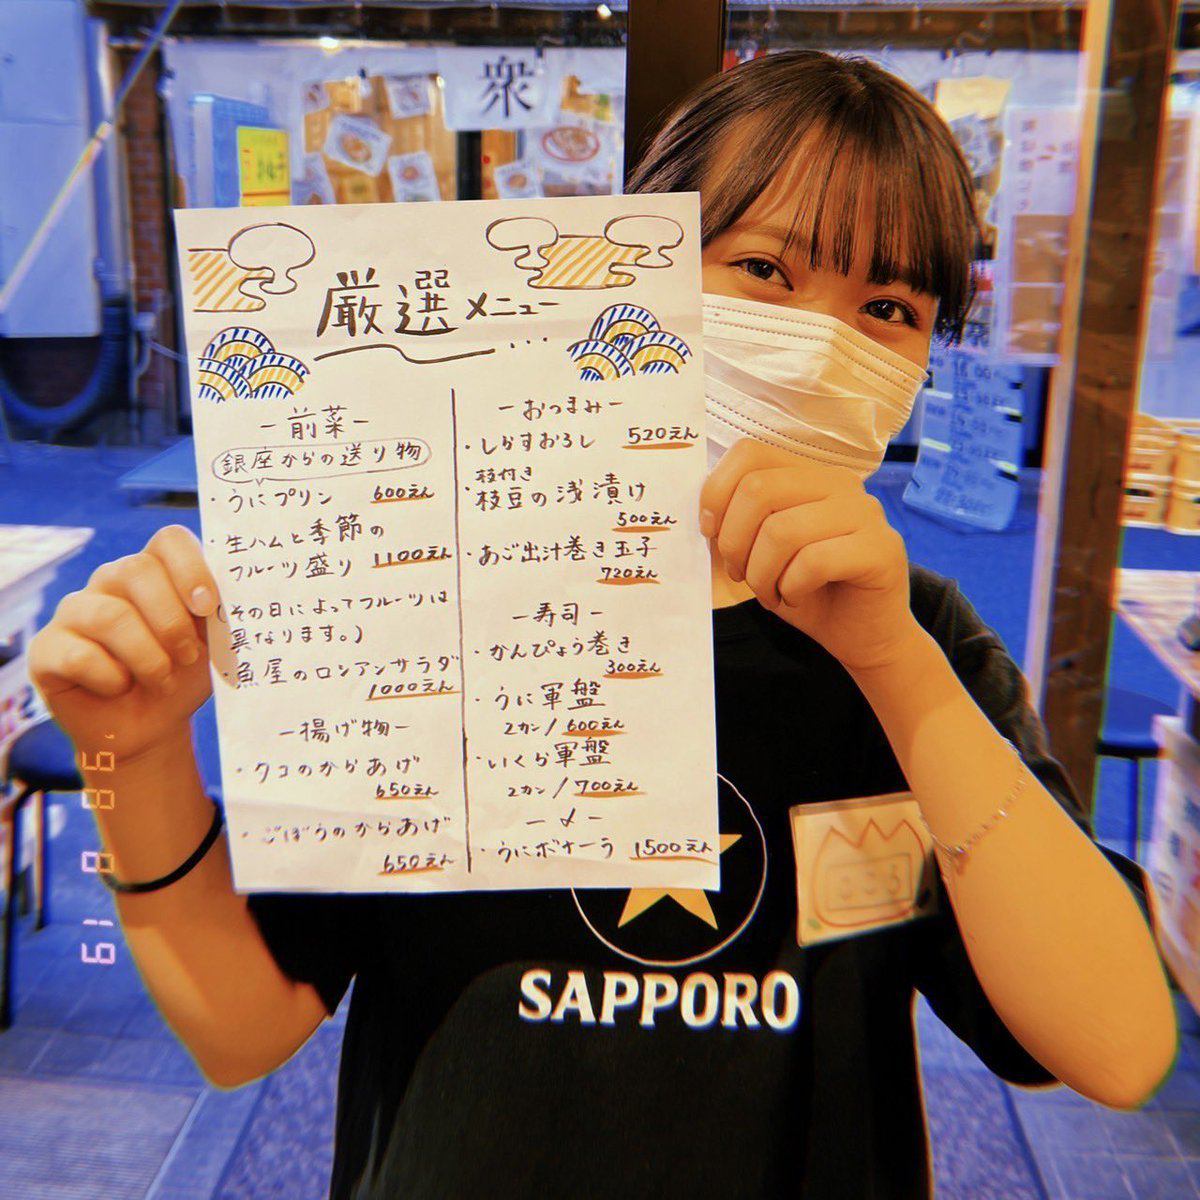 衆
厳選メニュー...
ー前菜ー
銀座からの送り物
・うにプリン 600えん
・生ハムと季節の
フルーツ盛り 1100えん
(その日によってフルーツは
異なります。)
・魚屋のロシアンサラダ
1000えん
ー揚げ物ー
・タコのからあげ
650えん
・ごぼうのからあげ
650えん
ーおつまみー
・しらすおろし 520えん
枝付き
・枝豆の浅漬け
500えん
・あご出汁巻き玉子
720えん
ー寿司ー
・かんぴょう巻き
300えん
・うに軍盤
2カン/600えん
・いくら軍盤
2カン/700えん
ー〆ー
・うにボナーラ 1500えん
SAPPORO
'98 8 19